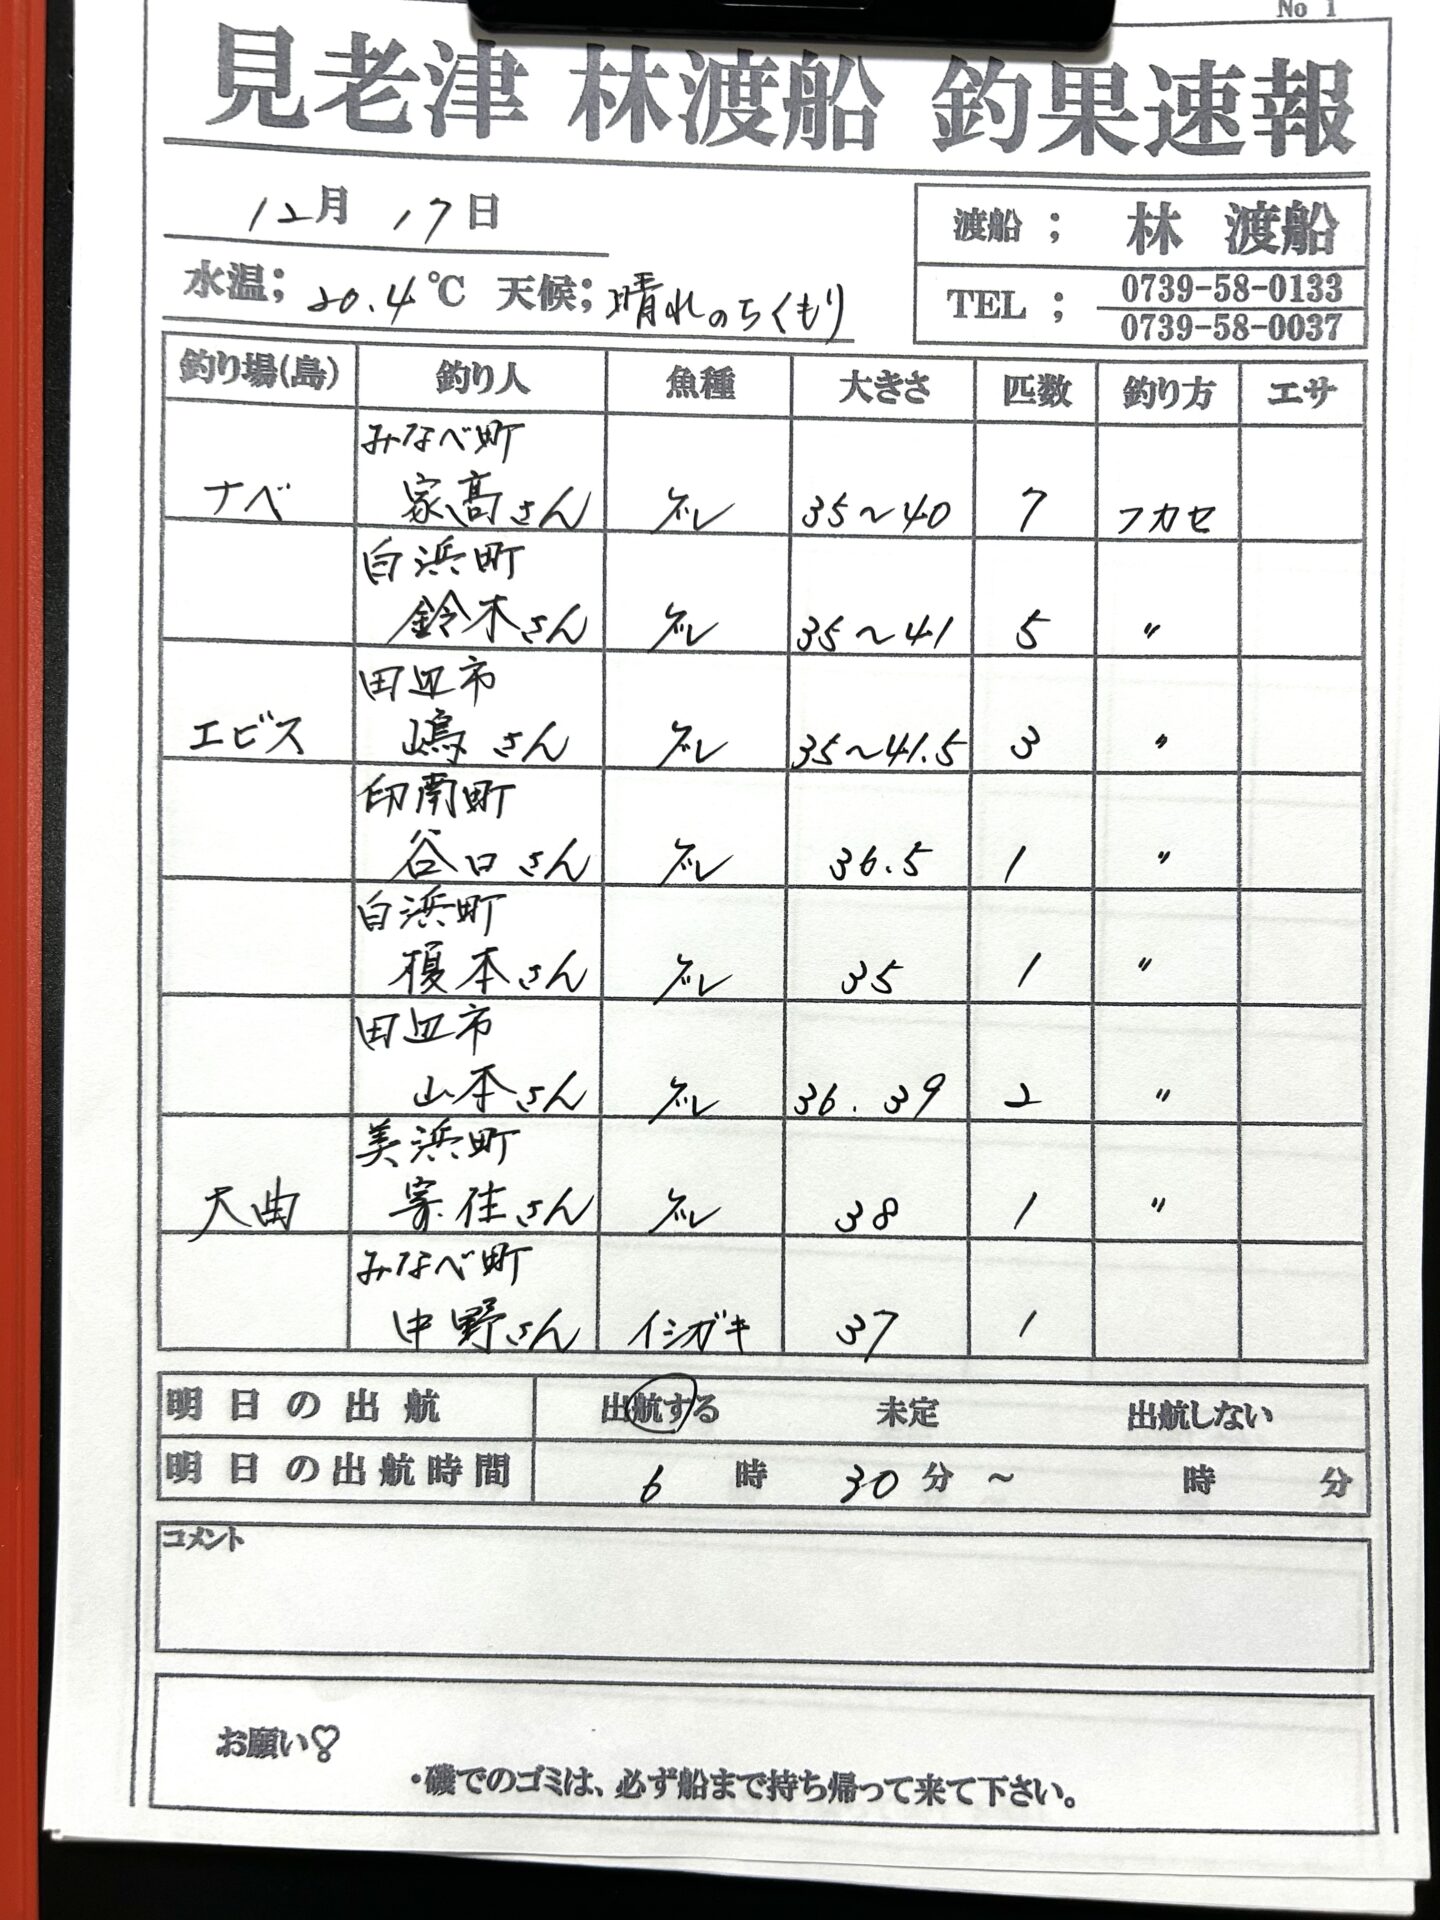 No 1
見老津 林渡船 釣果速報
12月 17日
渡船 ; 林 渡船
水温; 20.4℃ 天候; 晴れのちくもり
TEL ; 0739-58-0133
0739-58-0037
釣り場(島) 釣り人 魚種 大きさ 匹数 釣り方 エサ
みなべ町
ナベ 家高さん グレ 35～40 7 フカセ
白浜町
鈴木さん グレ 35～41 5 〃
田辺市
エビス 嶋さん グレ 35～41.5 3 〃
印南町
谷口さん グレ 36.5 1 〃
白浜町
榎本さん グレ 35 1 〃
田辺市
山本さん グレ 36.39 2 〃
美浜町
大曲 寄住さん グレ 38 1 〃
みなべ町
中野さん イシガキ 37 1
明日の出航 出航する 未定 出航しない
明日の出航時間 6 時 30 分 ～ 時 分
コメント
お願い♡
・磯でのゴミは、必ず船まで持ち帰って来て下さい。